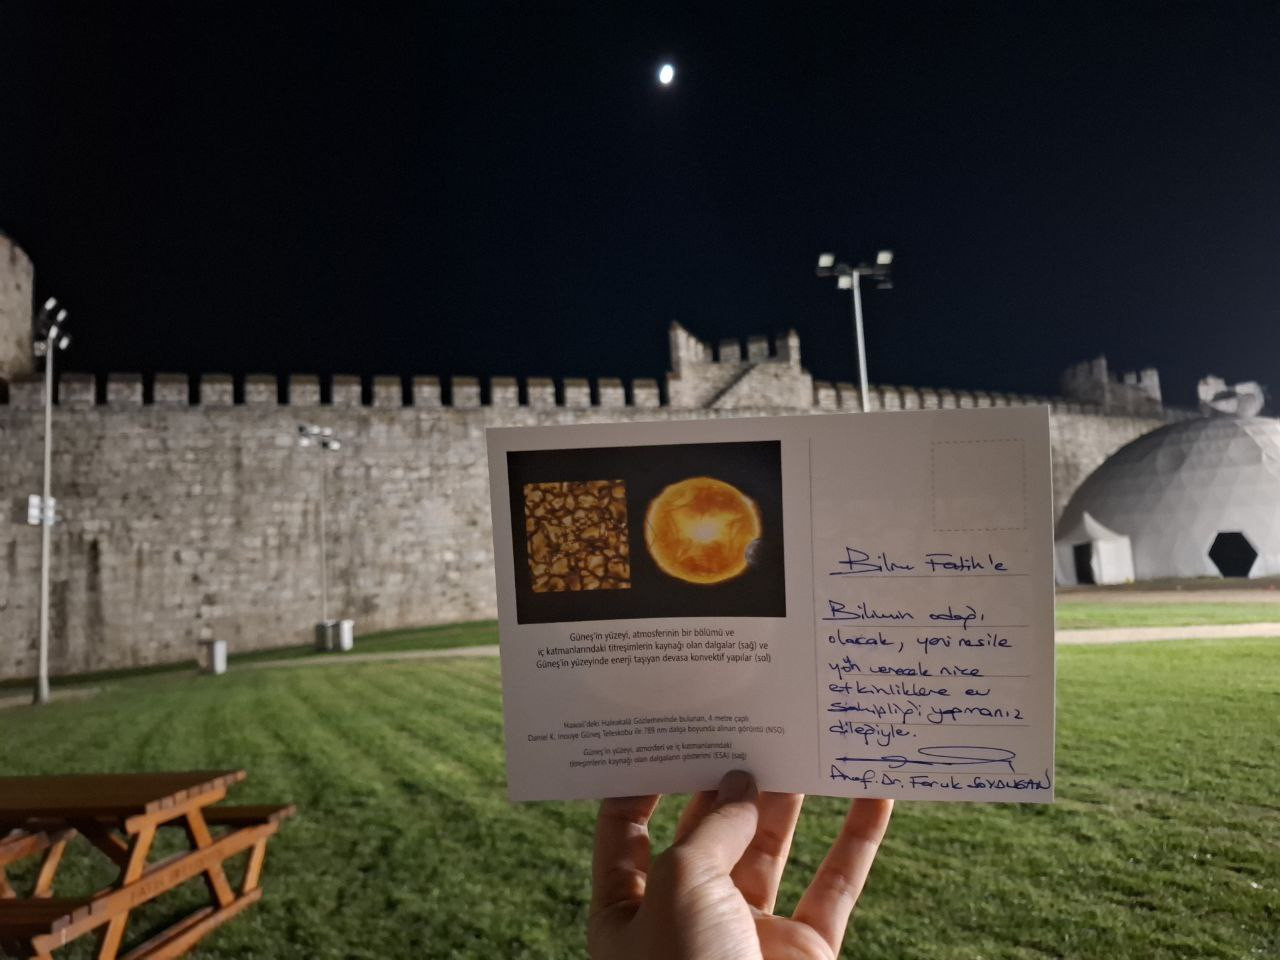 Güneş'in yüzeyi, atmosferinin bir bölümü ve
iç katmanlarındaki titreşimlerin kaynağı olan dalgalar (sağ) ve
Güneş'in yüzeyinde enerji taşıyan devasa konvektif yapılar (sol)
Hawaii'deki Haleakala Gözlemevinde bulunan, 4 metre çaplı
Daniel K. Inouye Güneş Teleskobu ile 789 nm dalga boyunda alınan görüntü (NSO)
Güneş'in yüzeyi, atmosferi ve iç katmanlarındaki
titreşimlerin kaynağı olan dalgaların gösterimi (ESA) (sağ)
Bilim Fatih'e
Bilimin odağı
olacak, yeni nesile
yön verecek nice
etkinliklere ev
sahipliği yapmanız
dileğiyle.
Prof. Dr. Faruk SOYDUGAN